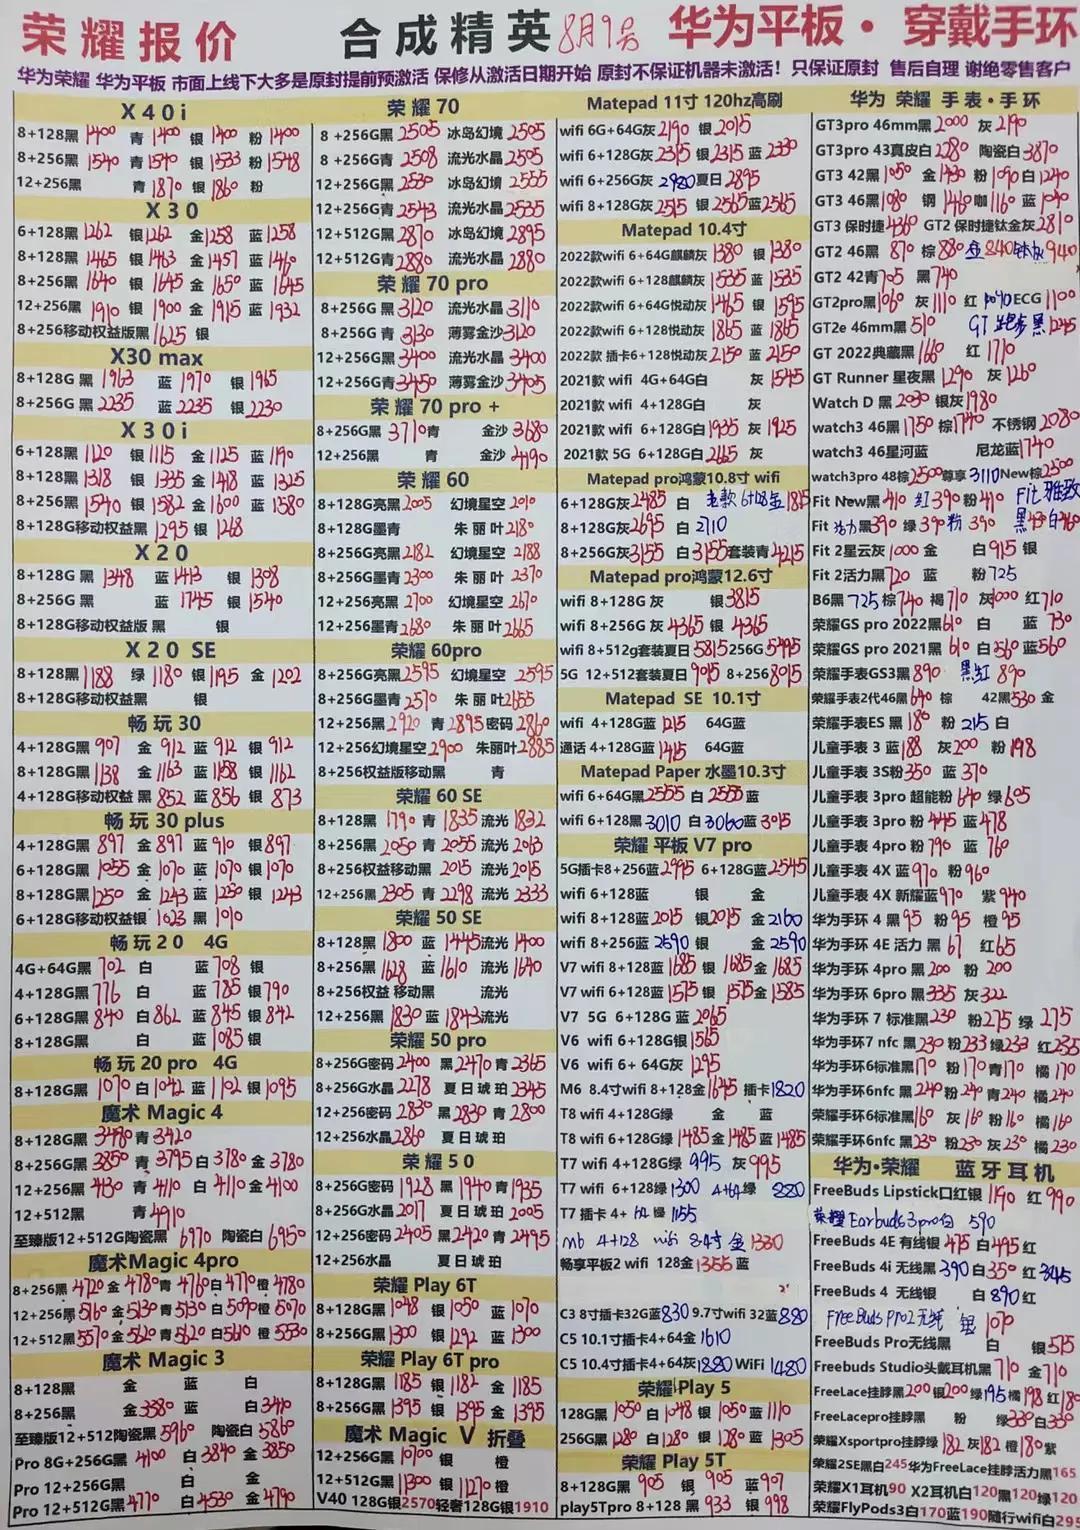 荣耀报价 合成精英 8月9号 华为平板·穿戴手环
华为荣耀 华为平板 市面上线下大多是原封提前预激活 保修从激活日期开始 原封不保证机器未激活！只保证原封 售后自理 谢绝零售客户
X40i
8+128黑1400 青1400 银1400 粉1400
8+256黑1540 青1540 银1533 粉1548
12+256黑 青1870 银1860 粉
X30
6+128黑1262 银1262 金1258 蓝1258
8+128黑1465 银1463 金1457 蓝1460
8+256黑1640 银1645 金1650 蓝1645
12+256黑1910 银1900 金1915 蓝1932
8+256移动权益版黑1625 银
X30 max
8+128G 黑1963 蓝1970 银1965
8+256G 黑2235 蓝2235 银2230
X30i
6+128黑1120 银1115 金1125 蓝1190
8+128黑1318 银1335 金1418 蓝1325
8+256黑1540 银1582 金1600 蓝1580
8+128G移动权益黑1295 银1268
X20
8+128G 黑1348 蓝1413 银1398
8+256G 黑 蓝1745 银1540
8+128G移动权益版 黑 银
X20 SE
8+128黑1188 绿1180 银1195 金1202
8+128G移动权益黑 银
畅玩30
4+128G黑907 金912 蓝912 银912
8+128G黑1138 金1163 蓝1158 银1162
4+128G移动权益 黑852 蓝856 银873
畅玩30 plus
4+128G黑897 金897 蓝910 银897
6+128G黑1055 金1070 蓝1070 银1070
8+128G黑1250 金1243 蓝1230 银1243
6+128G移动权益银1023 黑1010
畅玩20 4G
4G+64G黑702 白 蓝708 银
4+128G黑776 白 蓝785 银790
6+128G黑840 白862 蓝845 银842
8+128G黑 白 蓝1085 银
畅玩20 pro 4G
8+128G黑1070 白1042 蓝1102 银1095
魔术 Magic 4
8+128G黑3490 青3420
8+256G黑3850 青3795 白3780 金3780
12+256黑4130 青4110 白4110 金4100
12+512黑 青4910
至臻版12+512G陶瓷黑6970 陶瓷白6950
魔术Magic 4pro
8+256黑4720 金4780 青4760 白4770 橙4780
12+256黑5160 金5130 青5130 白5090 橙5070
12+512黑5570 金5620 青5620 白5610 橙5530
魔术 Magic 3
8+128黑 金 蓝 白
8+256黑 金3580 蓝 白3440
至臻版12+512陶瓷黑5960 陶瓷白5860
Pro 8G+256G黑4100 白3840 金3850
Pro 12+256G黑 白 金
Pro 12+512G黑4770 白4530 金4790
荣耀70
8 +256G黑2505 冰岛幻境2505
8 +256G青2508 流光水晶2505
12+256G黑2530 冰岛幻境2555
12+256G青2543 流光水晶2535
12+512G黑2870 冰岛幻境2895
12+512G青2880 流光水晶2880
荣耀70 pro
8+256G黑3120 流光水晶3110
8+256G青3130 薄雾金沙3120
12+256G黑3400 流光水晶3400
12+256G青3450 薄雾金沙3405
荣耀70 pro +
8+256G黑3710 青 金沙3680
12+256黑 青 金沙4190
荣耀60
8+128G亮黑2005 幻境星空2010
8+128G墨青 朱丽叶2180
8+256G亮黑2182 幻境星空2188
8+256G墨青2300 朱丽叶2370
12+256亮黑2700 幻境星空2670
12+256墨青2680 朱丽叶2665
荣耀60pro
8+256G亮黑2595 幻境星空2595
8+256G墨青2570 朱丽叶2655
12+256黑2920 青2895 密码2860
12+256幻境星空2900 朱丽叶2885
8+256权益版移动黑 青
荣耀60 SE
8+128黑1790 青1835 流光1832
8+256黑2050 青2055 流光2013
8+256权益移动黑2015 流光2015
12+256黑2305 青2298 流光2333
荣耀50 SE
8+128黑1800 蓝1445 流光1400
8+256黑1628 蓝1610 流光1640
8+256权益移动黑 流光
12+256黑1830 蓝1843 流光
荣耀50 pro
8+256G密码2400 黑2470 青2365
8+256G水晶2278 夏日琥珀2345
12+256密码2830 黑2830 青2800
12+256水晶2860 夏日琥珀
荣耀50
8+256G密码1928 黑1940 青1935
8+256G水晶2017 夏日琥珀2005
12+256密码2405 黑2420 青2495
12+256水晶 夏日琥珀
荣耀 Play 6T
8+128G黑1048 银1050 蓝1070
8+256G黑1300 银1292 蓝1300
荣耀 Play 6T pro
8+128G黑1185 银1182 金1185
8+256G黑1395 银1395 金1395
魔术 Magic V 折叠
12+256G黑10700 银 橙
12+512G黑11300 银11270 橙
V40 128G银2570 轻奢128G银1910
Matepad 11寸 120hz高刷
wifi 6G+64G灰2190 银2015
wifi 6+128G灰2315 银2315 蓝2330
wifi 6+256G灰2920 夏日2895
wifi 8+128G灰2515 银2565 蓝2565
Matepad 10.4寸
2022款wifi 6+64G麒麟灰1380 银1380
2022款wifi 6+128麒麟灰1535 蓝1535
2022款wifi 6+64G悦动灰1465 银1595
2022款wifi 6+128悦动灰1865 蓝1865
2022款 插卡6+128悦动灰2150 蓝2150
2021款 wifi 4G+64G白 灰1545
2021款 wifi 4+128G白 灰
2021款 wifi 6+128G白1935 灰1925
2021款 5G 6+128G白2165 灰
Matepad pro鸿蒙10.8寸 wifi
6+128G灰2485 白 老款 6+128金1815
8+128G灰2695 白2710
8+256G灰3155 白3155 套装青4215
Matepad pro鸿蒙12.6寸
wifi 8+128G 灰 银3815
wifi 8+256G 灰4365 银4365
wifi 8+512g套装夏日5815 256G5495
5G 12+512套装夏日9015 8+256 8015
Matepad SE 10.1寸
wifi 4+128G蓝1215 64G蓝
通话 4+128G蓝1415 64G蓝
Matepad Paper 水墨10.3寸
wifi 6+64G黑2555 白2555 蓝
wifi 6+128黑3010 白3060 蓝3015
荣耀 平板 V7 pro
5G插卡8+256蓝2995 6+128G蓝2545
wifi 6+128蓝 银 金
wifi 8+128蓝2015 银2015 金2160
wifi 8+256蓝2590 银 金2590
V7 wifi 8+128蓝1685 银1685 金1685
V7 wifi 6+128蓝1575 银1575 金1585
V7 5G 6+128G 蓝2065
V6 wifi 6+128G银1565
V6 wifi 6+ 64G灰1295
M6 8.4寸wifi 8+128金1645 插卡1820
T8 wifi 4+128G绿 金 蓝
T8 wifi 6+128G绿1485 金1485 蓝1485
T7 wifi 4+128G绿995 灰995
T7 wifi 6+128绿1300 4+64 绿 880
T7 插卡 4+ 64 绿 1155
M6 4+128 wifi 8.4寸 金1330
畅享平板2 wifi 128金1355 蓝
C3 8寸插卡32G蓝830 9.7寸wifi 32蓝880
C5 10.1寸插卡4+64金1610
C5 10.4寸插卡4+64灰1880 WiFi 1480
荣耀Play 5
128G黑1050 白1048 银1050 蓝1110
256G黑1280 白1280 银1280 蓝1305
荣耀 Play 5T
8+128G黑905 银905 蓝907
play5Tpro 8+128 黑933 银998
华为 荣耀 手表·手环
GT3pro 46mm黑2000 灰2190
GT3pro 43真皮白2280 陶瓷白3870
GT3 42黑1050 金1430 粉1090 白1240
GT3 46黑1080 钢1460 咖1160 蓝1040
GT3 保时捷4360 GT2 保时捷钛金灰2810
GT2 46黑870 棕880 金840 钛灰940
GT2 42青705 黑740
GT2pro黑1060 灰1110 红1040 ECG1100
GT2e 46mm黑510 GT 跑步 黑1245
GT 2022典藏黑1660 红1710
GT Runner 星夜黑1290 灰1260
Watch D 黑2030 银灰1980
watch3 46黑1750 棕1740 不锈钢2080
watch3 46星河蓝 尼龙蓝1740
watch3pro 48棕2500 尊享3110 New棕2500
Fit New黑410 红390 粉410 Fit 雅致
Fit 活力黑390 绿390 粉390 黑430 白460
Fit 2星云灰1000 金 白915 银
Fit 2活力黑720 蓝 粉725
B6黑725 棕740 褐710 灰1000 红710
荣耀GS pro 2022黑610 白 蓝730
荣耀GS pro 2021黑610 白560 蓝560
荣耀手表GS3黑890 黑红890
荣耀手表2代46黑640 棕 42黑530 金
荣耀手表ES 黑180 粉215 白
儿童手表 3 蓝188 灰200 粉198
儿童手表 3S粉350 蓝370
儿童手表 3pro 超能粉640 绿605
儿童手表 3pro 粉445 蓝478
儿童手表 4pro 粉790 蓝760
儿童手表 4X 蓝970 粉960
儿童手表 4X 新耀蓝970 紫940
华为手环 4 黑95 粉95 橙95
华为手环 4E 活力 黑67 红65
华为手环 4pro 黑200 粉200
华为手环 6pro 黑335 灰322
华为手环 7 标准黑230 粉275 绿275
华为手环7 nfc 黑230 粉233 绿233 红235
华为手环6标准黑170 粉170 青170 橘170
华为手环6nfc 黑240 粉240 青240 橘240
荣耀手环6标准黑160 灰160 粉160 橘160
荣耀手环6nfc 黑230 粉230 灰230 橘230
华为·荣耀 蓝牙耳机
FreeBuds Lipstick口红银1190 红990
荣耀 Earbuds3pro白 590
FreeBuds 4E 有线银475 白495 红
FreeBuds 4i 无线黑390 白350 红345
FreeBuds 4 无线银 白890 红
FreeBuds Pro2无线 银1070
FreeBuds Pro无线黑 白 银575
Freebuds Studio头戴耳机黑710 金710
FreeLace挂脖黑200 银200 绿195 橘198 红180
FreeLacepro挂脖黑 粉 绿330 白330
荣耀Xsportpro挂脖绿182 灰182 橙180 紫
荣耀2SE黑白245 华为FreeLace挂脖活力黑165
荣耀X1耳机90 X2耳机白120 黑120 绿120
荣耀FlyPods3白170 蓝190 随行wifi白295